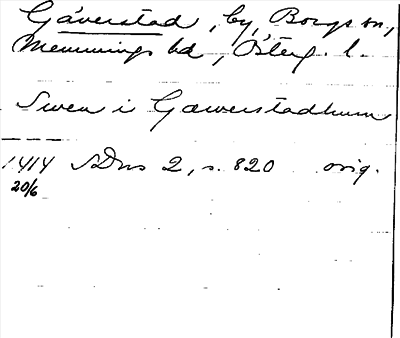 Gäverstad, by, Borgs sn,
Memmings hd, Österg. l.
Swen i Gæwerstadhum
1414 SDns 2, s. 820 orig.
20/6